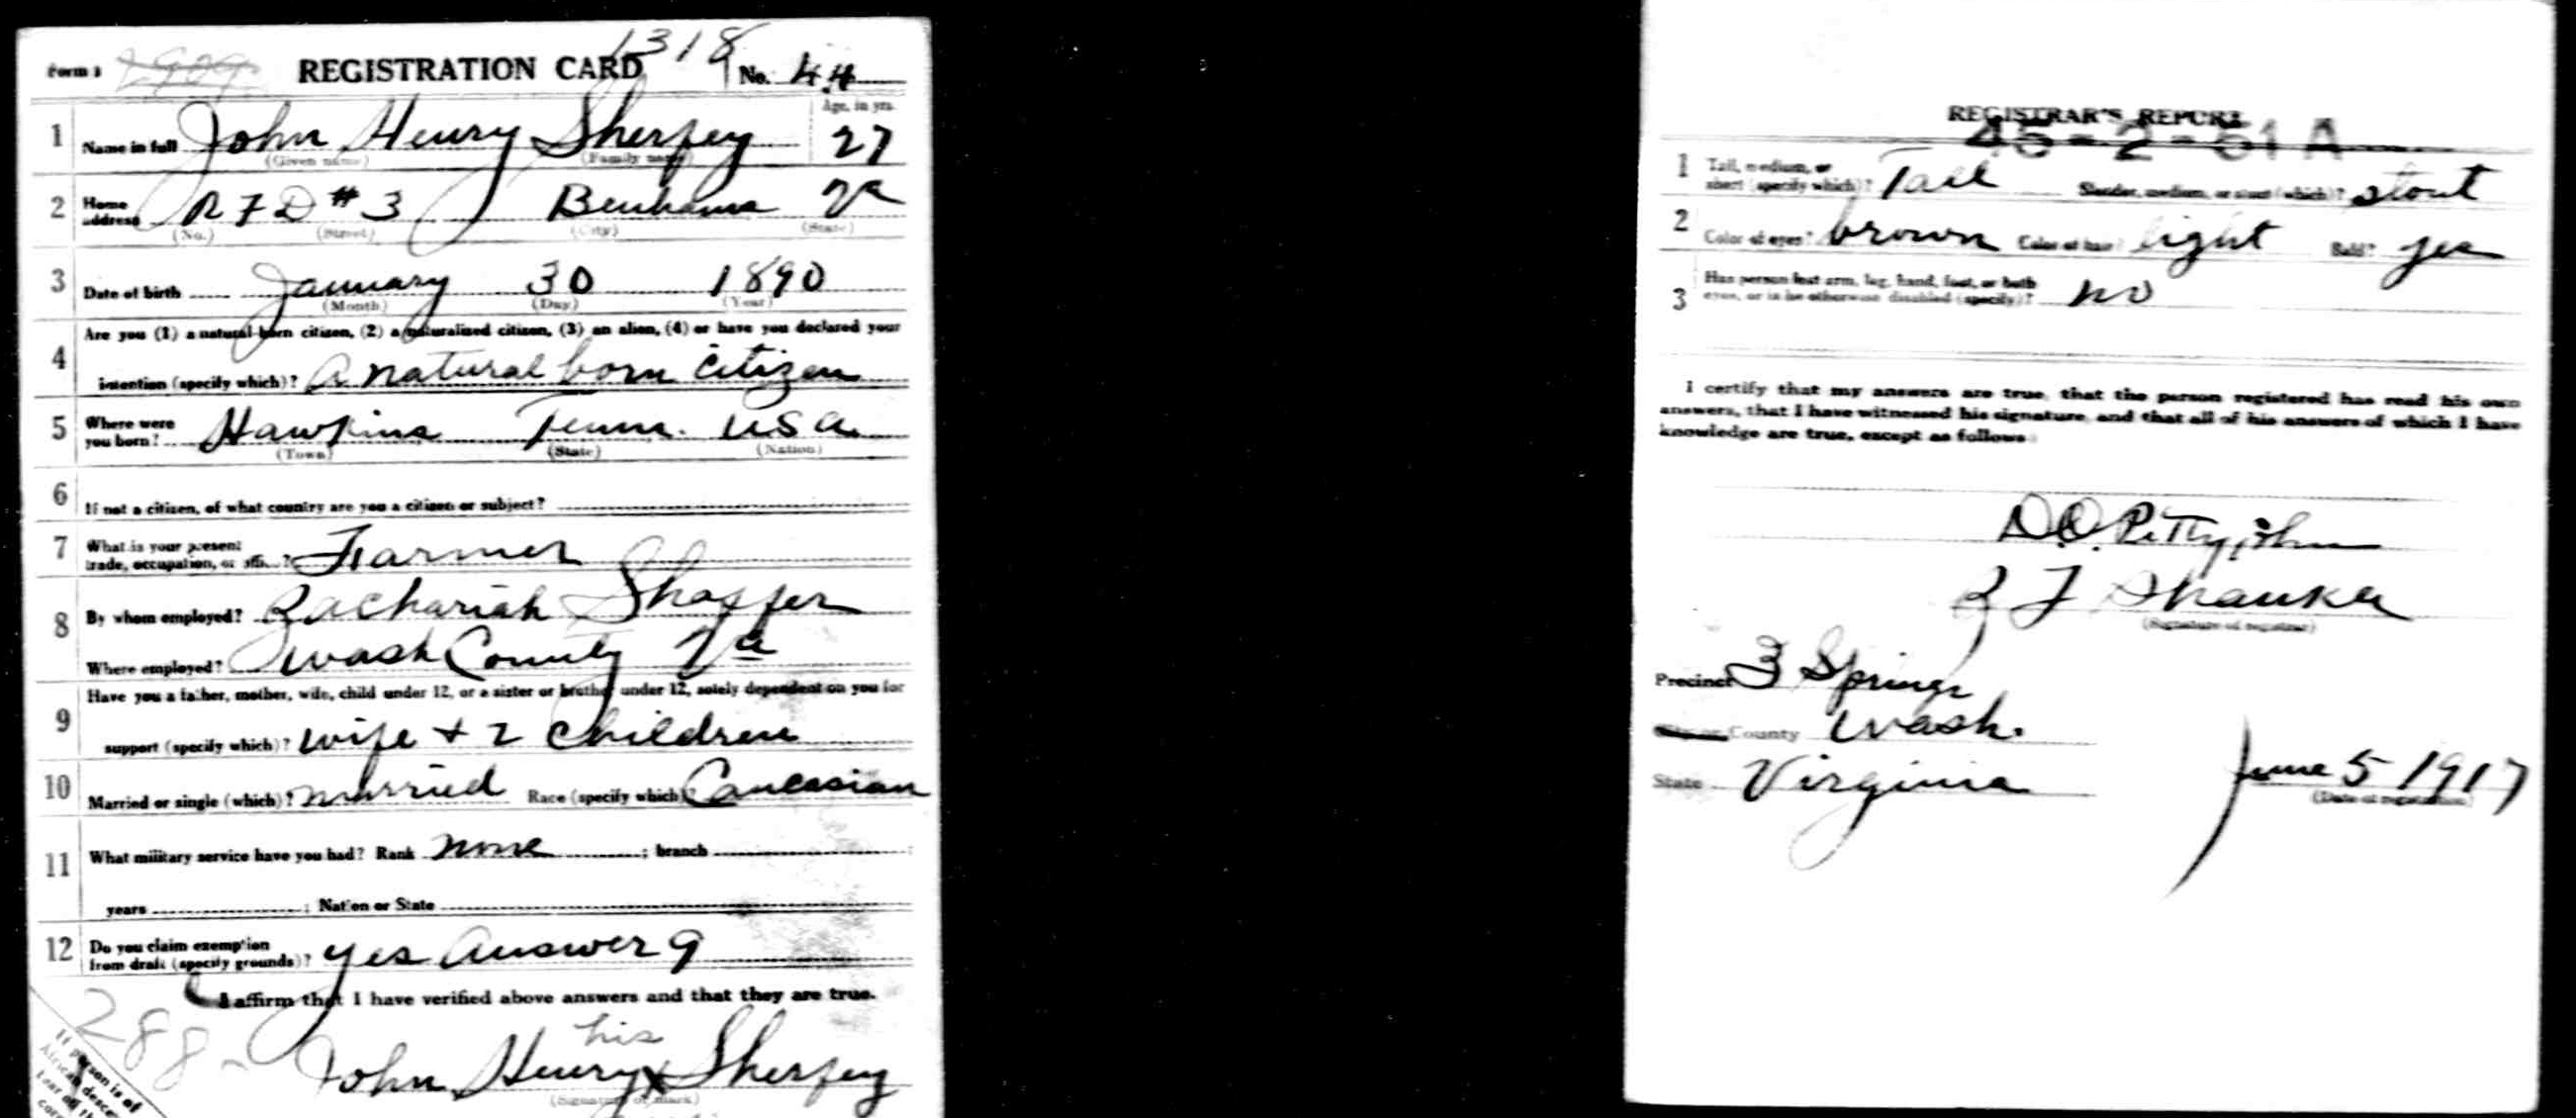 Form 1 1909 REGISTRATION CARD 1318 No. 44
1 Name in full John Henry Sherfey Age, in yrs. 27
(Given name) (Family name)
2 Home address R F D #3 Benhams Va
(No.) (Street) (City) (State)
3 Date of birth January 30 1890
(Month) (Day) (Year)
4 Are you (1) a natural-born citizen, (2) a naturalized citizen, (3) an alien, (4) or have you declared your
intention (specify which)? A natural born citizen
5 Where were you born? Hawkins Tenn. USA
(Town) (State) (Nation)
6 If not a citizen, of what country are you a citizen or subject?
7 What is your present trade, occupation, or office? Farmer
8 By whom employed? Zachariah Shaffer
Where employed? Wash County Va
9 Have you a father, mother, wife, child under 12, or a sister or brother under 12, solely dependent on you for
support (specify which)? wife + 2 children
10 Married or single (which)? married Race (specify which)? Caucasian
11 What military service have you had? Rank none ; branch
years ; Nation or State
12 Do you claim exemption from draft (specify grounds)? yes Answer 9
I affirm that I have verified above answers and that they are true.
288
his
John Henry X Sherfey
(Signature or mark)
If person is of
African desce
tear off th
corn
REGISTRAR'S REPORT
45-2-51 A
1 Tall, medium, or short (specify which)? Tall Slender, medium, or stout (which)? stout
2 Color of eyes? brown Color of hair? light Bald? yes
3 Has person lost arm, leg, hand, foot, or both eyes, or is he otherwise disabled (specify)? no
I certify that my answers are true, that the person registered has read his own
answers, that I have witnessed his signature, and that all of his answers of which I have
knowledge are true, except as follows:
D.O. Pettyjohn
(Signature of registrar)
Precinct 3 Springs
City or County Wash.
State Virginia June 5 1917
(Date of registration)